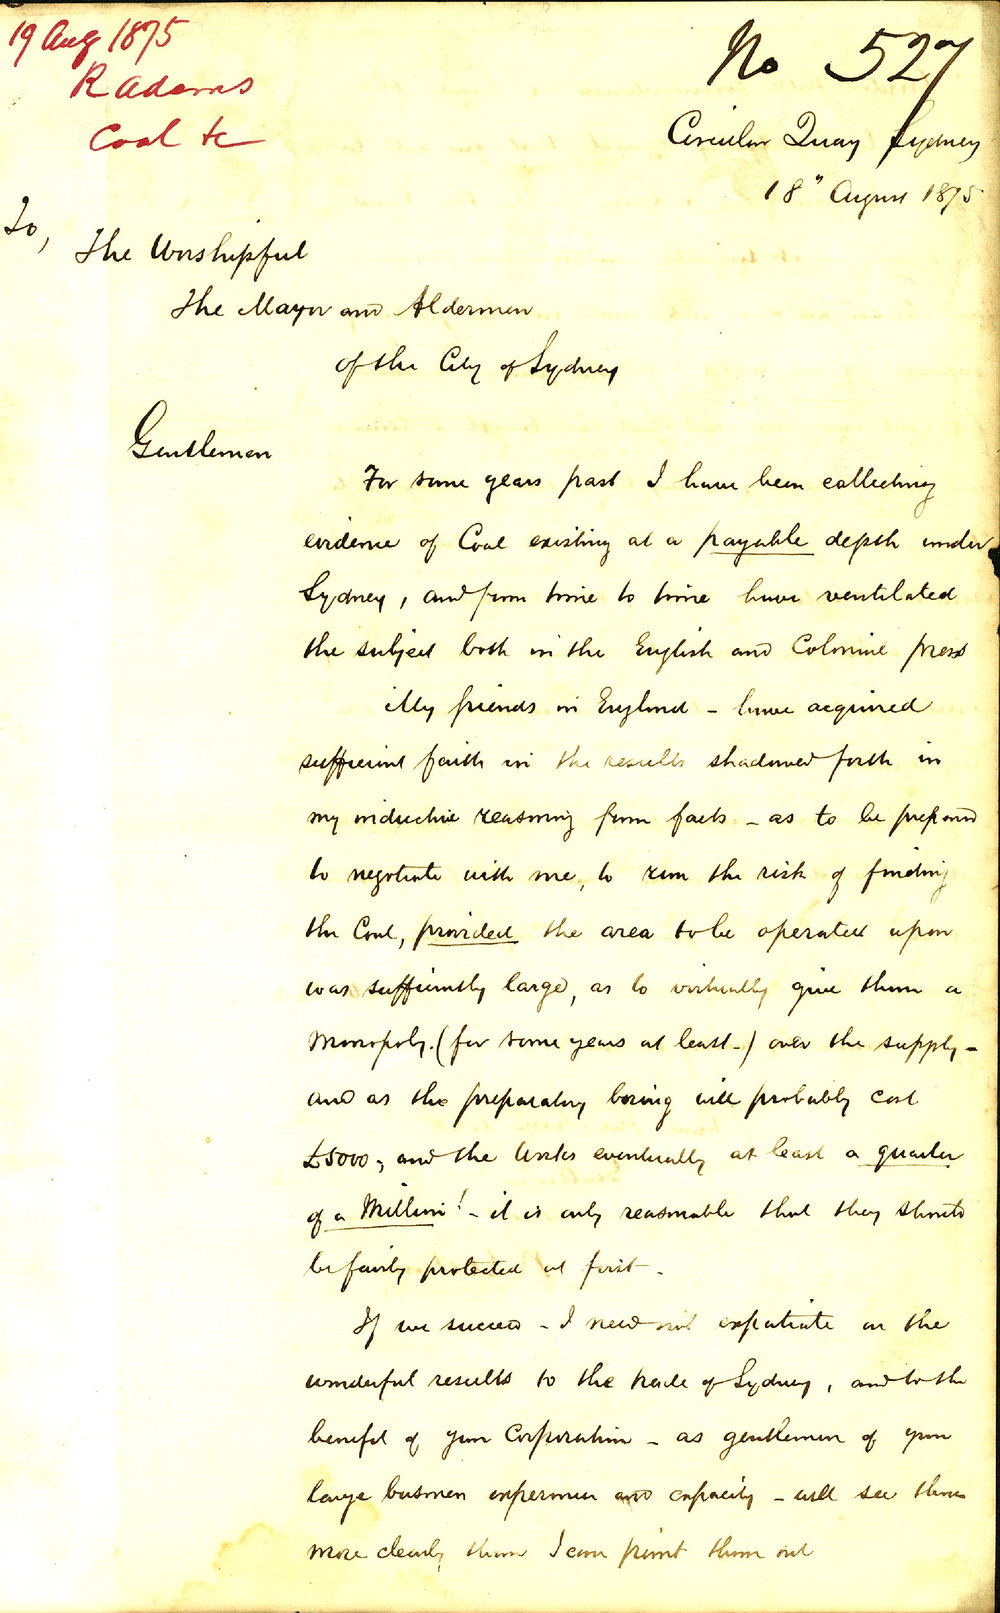 19 Aug 1875
R Adams
Coal &c
No 527
Circular Quay Sydney
18" August 1875
To,
The Worshipful
The Mayor and Aldermen
of the City of Sydney
Gentlemen
For some years past I have been collecting
evidence of Coal existing at a payable depth under
Sydney, and from time to time have ventilated
the subject both in the English and Colonial press
My friends in England - have acquired
sufficient faith in the results shadowed forth in
my inductive reasoning from facts - as to be prepared
to negotiate with me, to run the risk of finding
the Coal, provided the area to be operated upon
was sufficiently large, as to virtually give them a
Monopoly. (for some years at least -) over the supply -
and as the preparatory boring will probably cost
£5000, and the Works eventually at least a quarter
of a Million! - it is only reasonable that they should
be fairly protected at first -
If we succeed - I need not expatiate on the
wonderful results to the trade of Sydney, and to the
benefit of your Corporation - as gentlemen of your
large business experience and capacity - will see them
more clearly than I can point them out